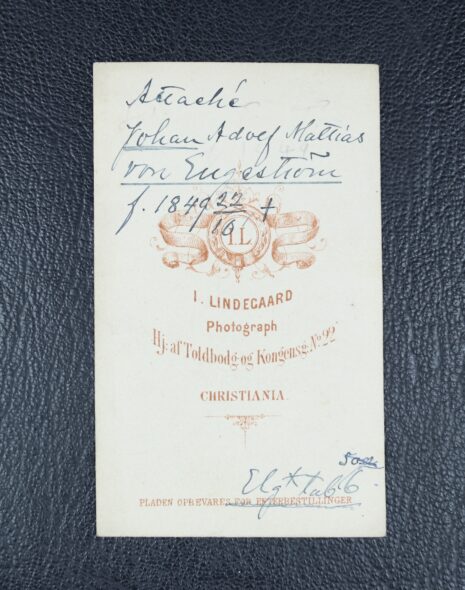 Attaché
Johan Adolf Mattias
von Engeström
f. 1849 22/10 +
I L
I. LINDEGAARD
Photograph
Hj: af Toldbodg. og Kongensg. No 22
CHRISTIANIA.
PLADEN OPBEVARES FOR EFTERBESTILLINGER